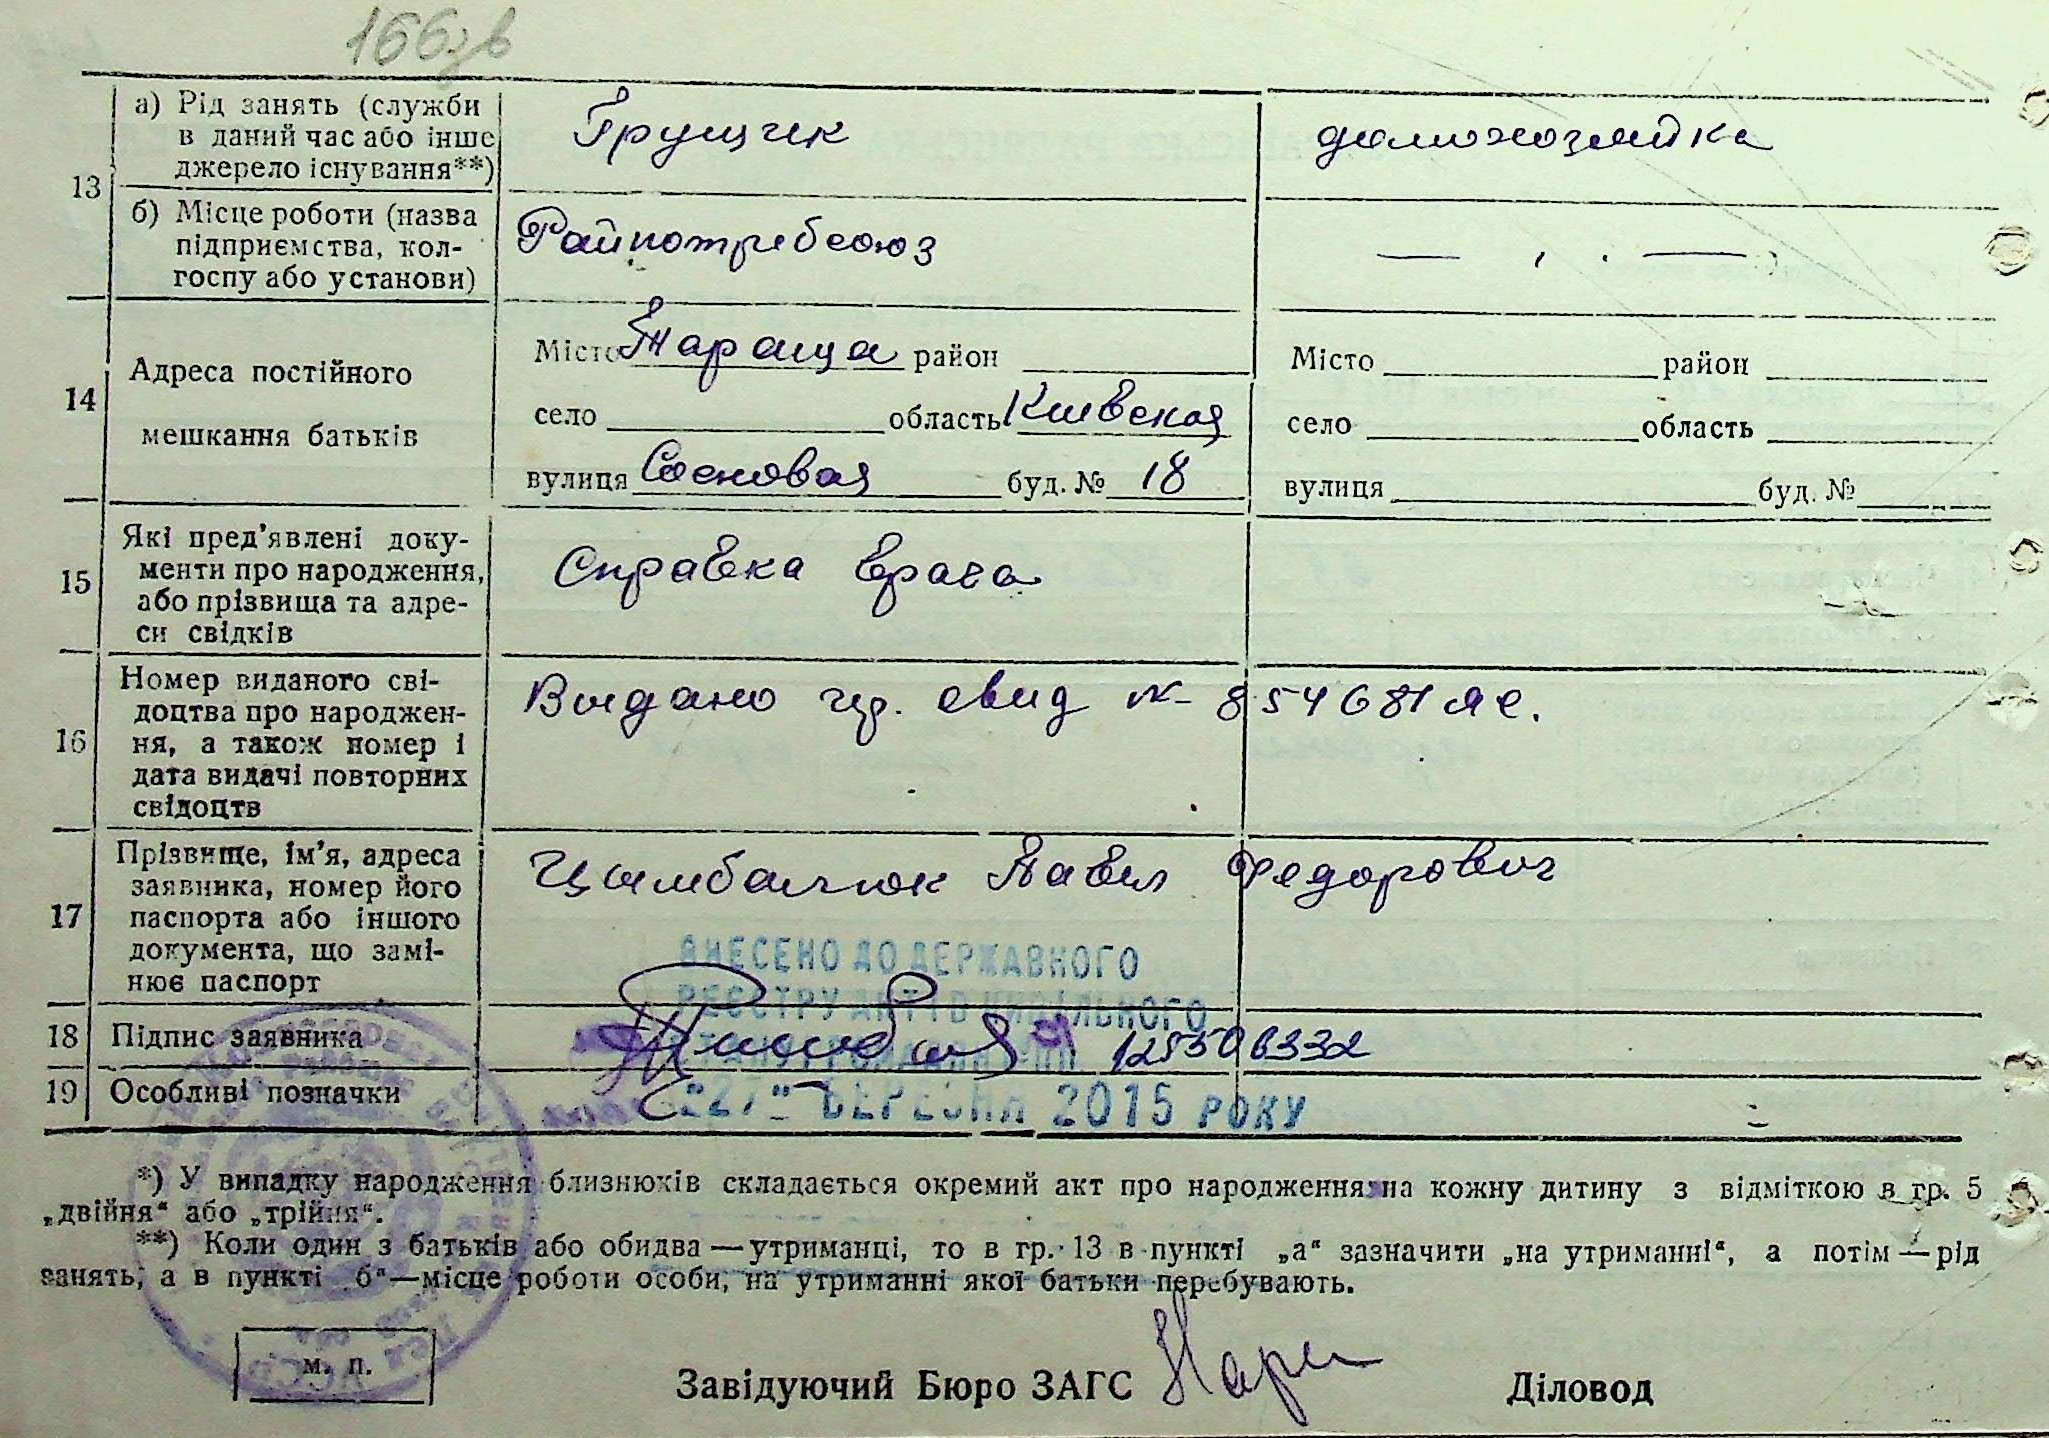 166зв
13
а) Рід занять (служби
в даний час або інше
джерело існування**)
Грущик
домохозяйка
б) Місце роботи (назва
підприємства, кол-
госпу або установи)
Райпотребсоюз
— " —
14
Адреса постійного
мешкання батьків
Місто Тараща район
село область Киевская
вулиця Сосновая буд. № 18
Місто район
село область
вулиця буд. №
15
Які пред'явлені доку-
менти про народження,
або прізвища та адре-
си свідків
Справка врача
16
Номер виданого сві-
доцтва про народжен-
ня, а також номер і
дата видачі повторних
свідоцтв
Выдано свид № 854681
17
Прізвище, ім'я, адреса
заявника, номер його
паспорта або іншого
документа, що замі-
нює паспорт
Цымбалюк Павел Федорович
ВНЕСЕНО ДО ДЕРЖАВНОГО
РЕЄСТРУ АКТІВ ЦИВІЛЬНОГО
СТАНУ ГРОМАДЯН
18
Підпис заявника
125506332
19
Особливі позначки
"27" БЕРЕЗНЯ 2015 РОКУ
*) У випадку народження близнюків складається окремий акт про народження на кожну дитину з відміткою в гр. 5
„двійня“ або „трійня“.
**) Коли один з батьків або обидва—утриманці, то в гр. 13 в пункті „а“ зазначити „на утриманні“, а потім—рід
занять, а в пункті „б“—місце роботи особи, на утриманні якої батьки перебувають.
м. п.
Завідуючий Бюро ЗАГС
Діловод